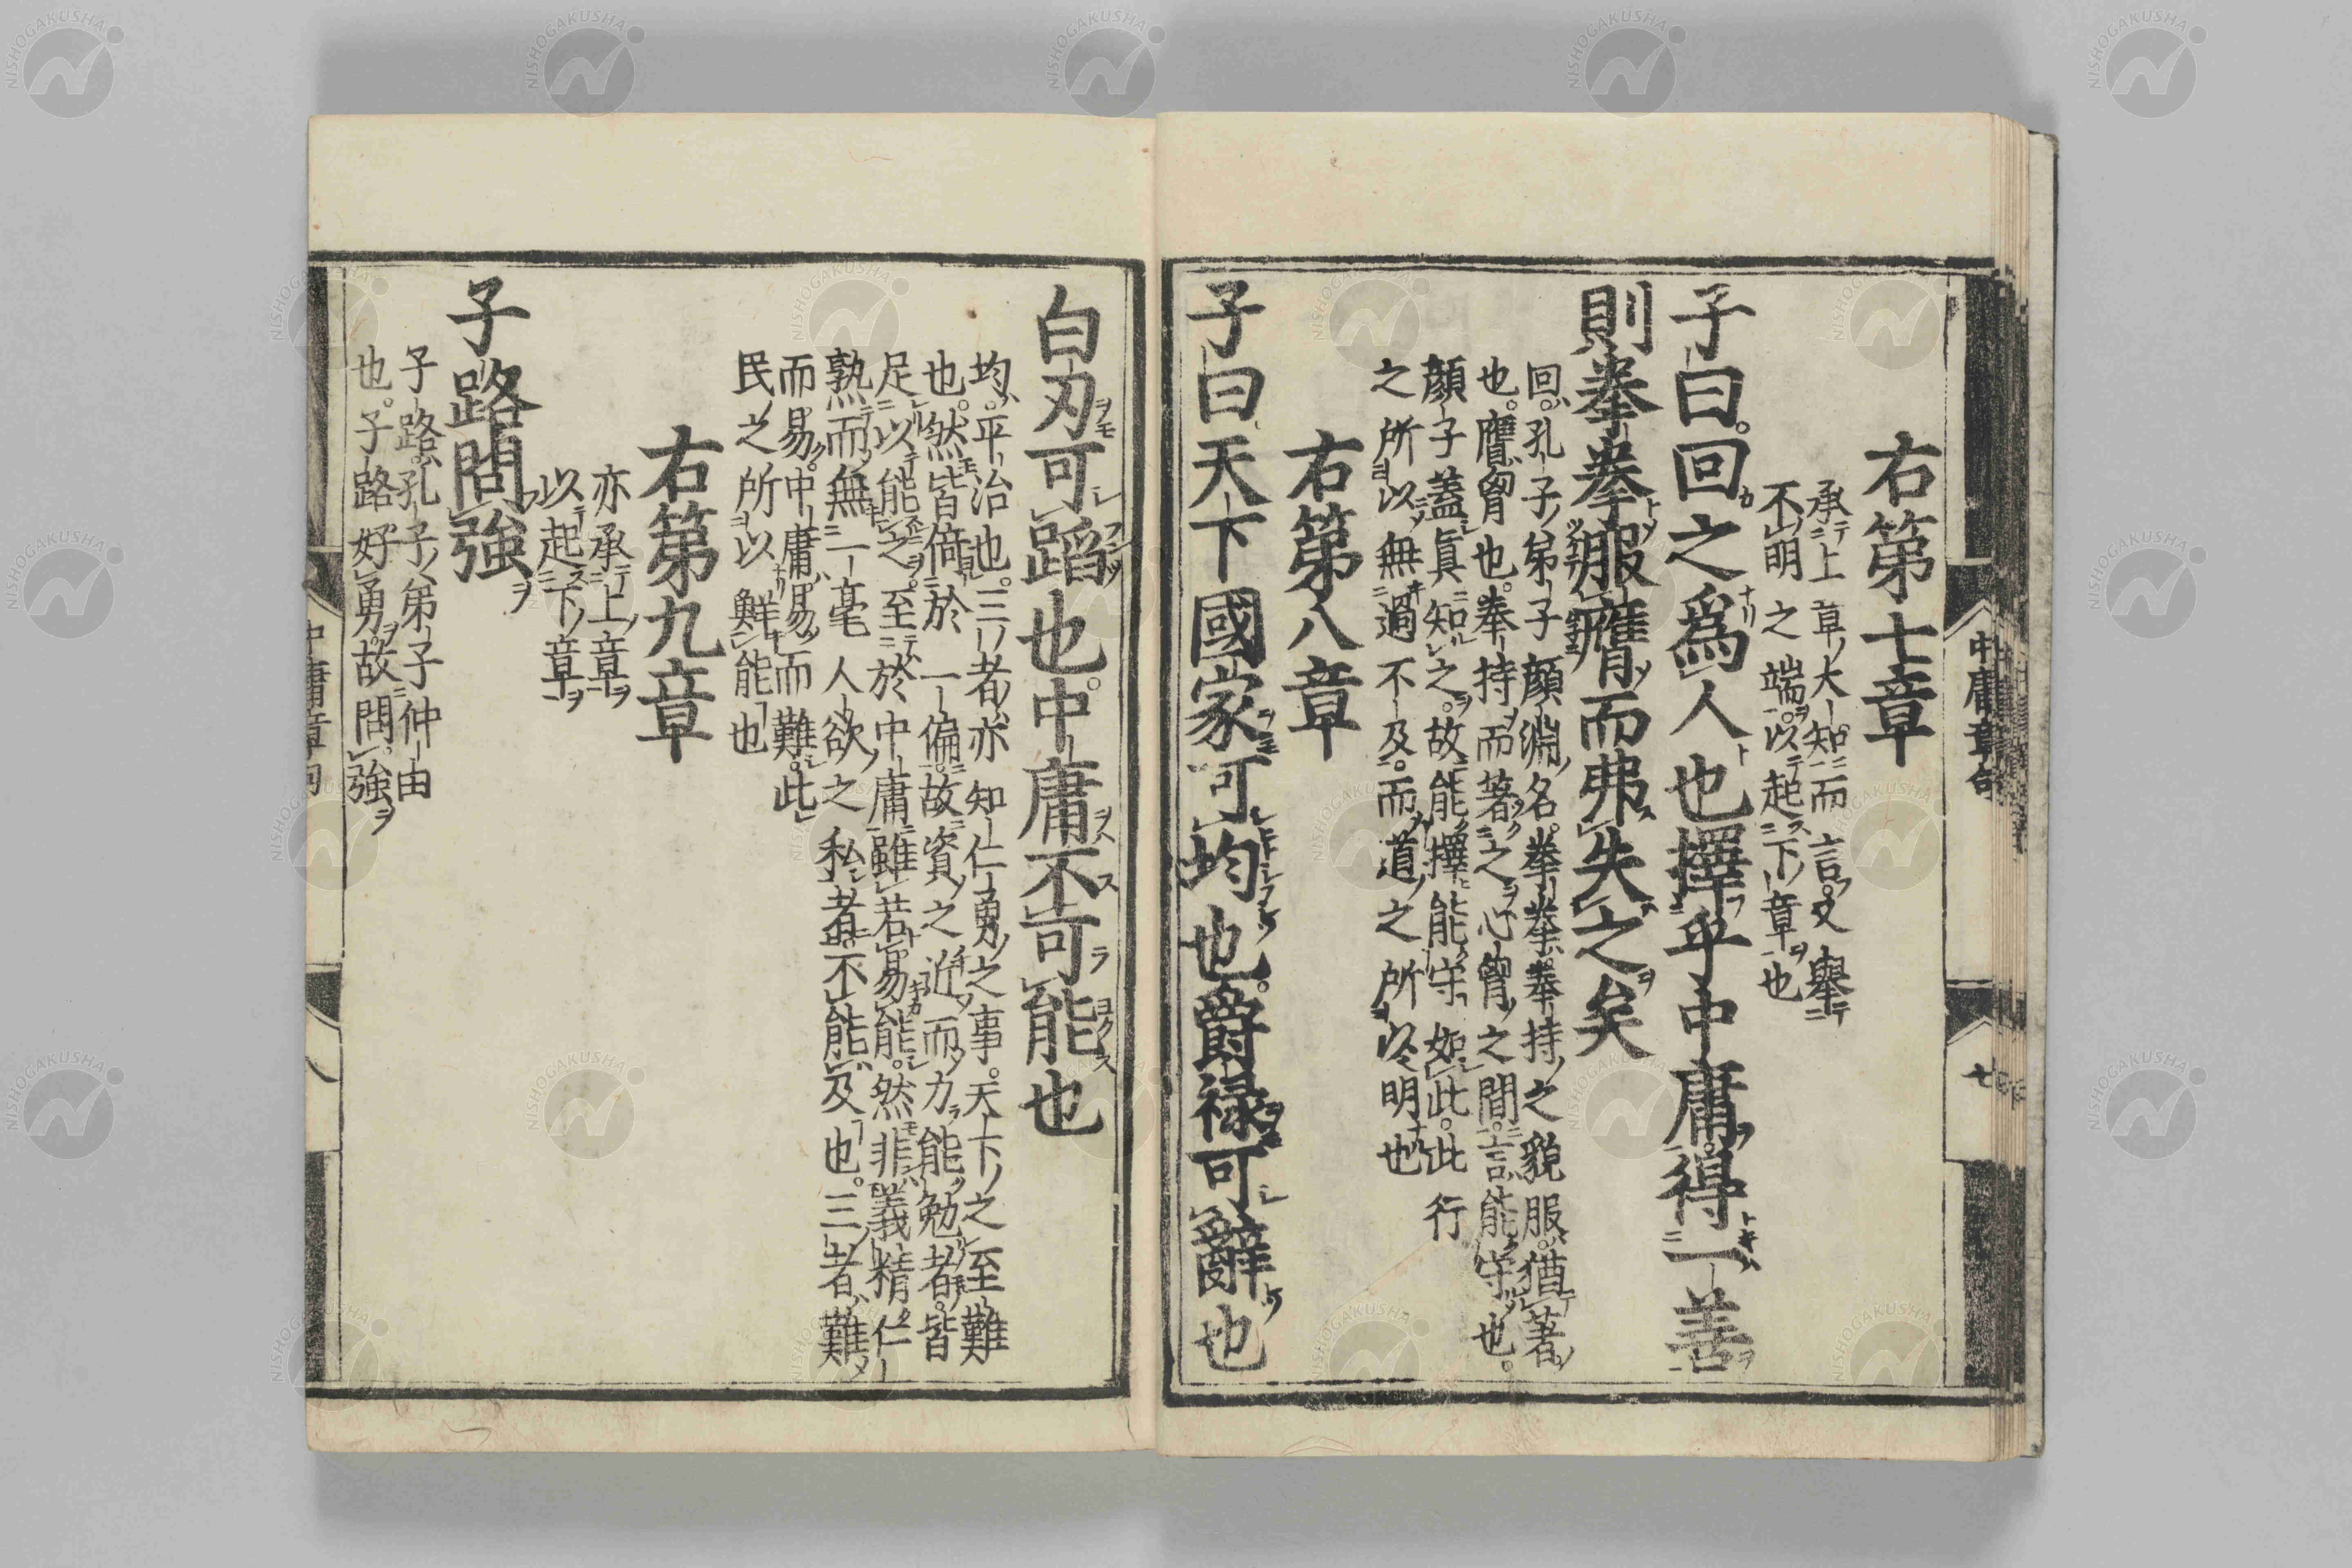 右第七章
承上章大知而言又舉
不明之端以起下章也
子曰回之爲人也擇乎中庸得一善
則拳拳服膺而弗失之矣
回孔子弟子顏淵名拳拳奉持之貌服猶著
也膺胷也奉持而著之心胷之間言能守也
顏子蓋眞知之故能擇能守如此此行
之所以無過不及而道之所以明也
右第八章
子曰天下國家可均也爵祿可辭也
白刃可蹈也中庸不可能也
均平治也三者亦知仁勇之事天下之至難
也然皆倚於一偏故資之近而力能勉者皆
足以能之至於中庸雖若易能然非義精仁
熟而無一毫人欲之私者不能及也三者難
而易中庸易而難此
民之所以鮮能也
右第九章
亦承上章
以起下章
子路問強
子路孔子弟子仲由
也子路好勇故問強
中庸章句
七
中庸章句
八
NISHOGAKUSHA